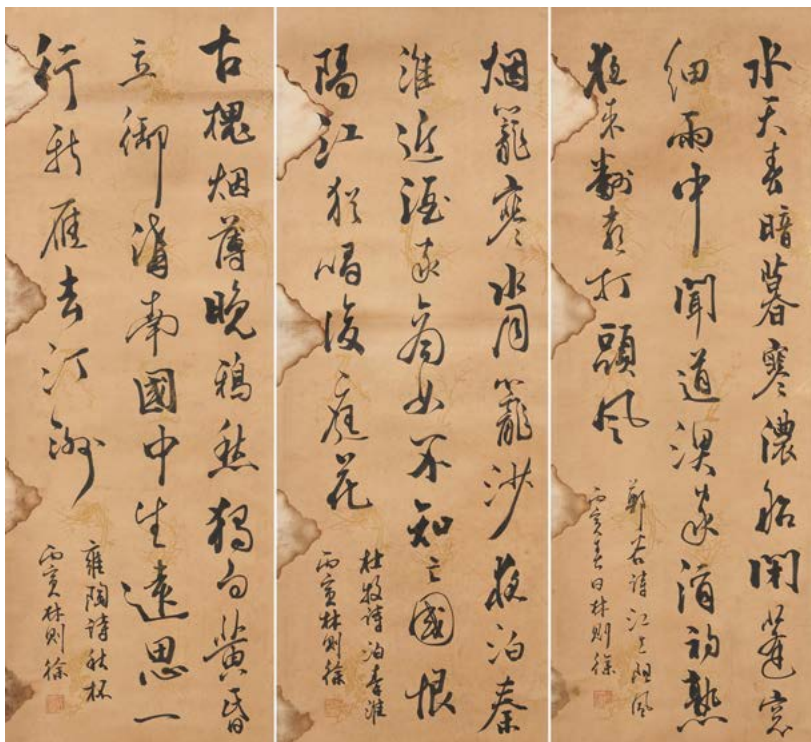 水天春暗暮寒濃船閉篷窓
細雨中聞道漁家酒初熟
夜来翻喜打頭風
鄭谷詩江上阻風
丙寅春日林則徐
烟籠寒水月籠沙夜泊秦
淮近酒家商女不知亡國恨
隔江猶唱後庭花
杜牧詩泊秦淮
丙寅林則徐
古槐烟薄晚鴉愁獨向黃昏
立御溝南國中生遠思一
行新雁去汀洲
雍陶詩秋怀
丙寅林則徐